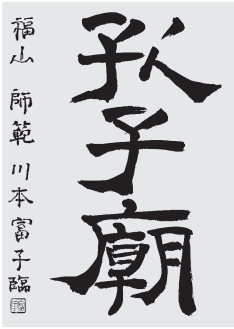 孔子廟
福山 師範 川本富子臨